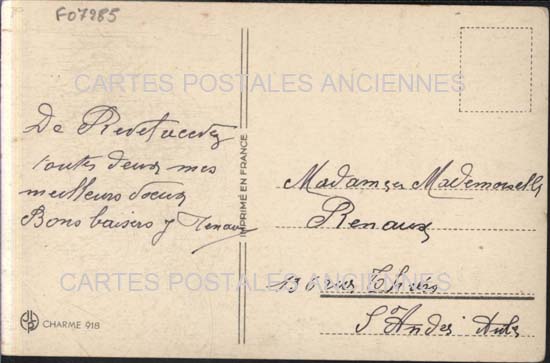 F07985
CARTES POSTALES ANCIENNES
De
toutes deux mes
meilleurs voeux
Bons baisers
IMPRIMÉ EN FRANCE
Madame Mademoiselle
Renaux
13 Thiers
St André Aube
CARTES POSTALES ANCIENNES
JP CHARME 918